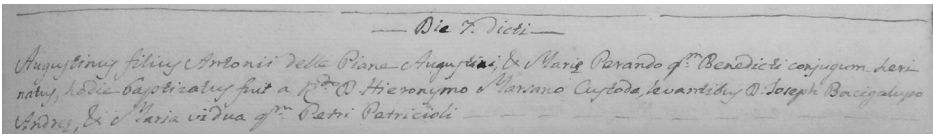 Die 7. dicti
Augustinus filius Antonii delle Piane Augustini, & Marię Perando qm Benedicti conjugum heri
natus, hodie baptizatus fuit a Rdo D Hieronymo Marsano Custode, levantibus D. Joseph Bacigalupo
Andreę, & Maria vidua qm Petri Patricioli